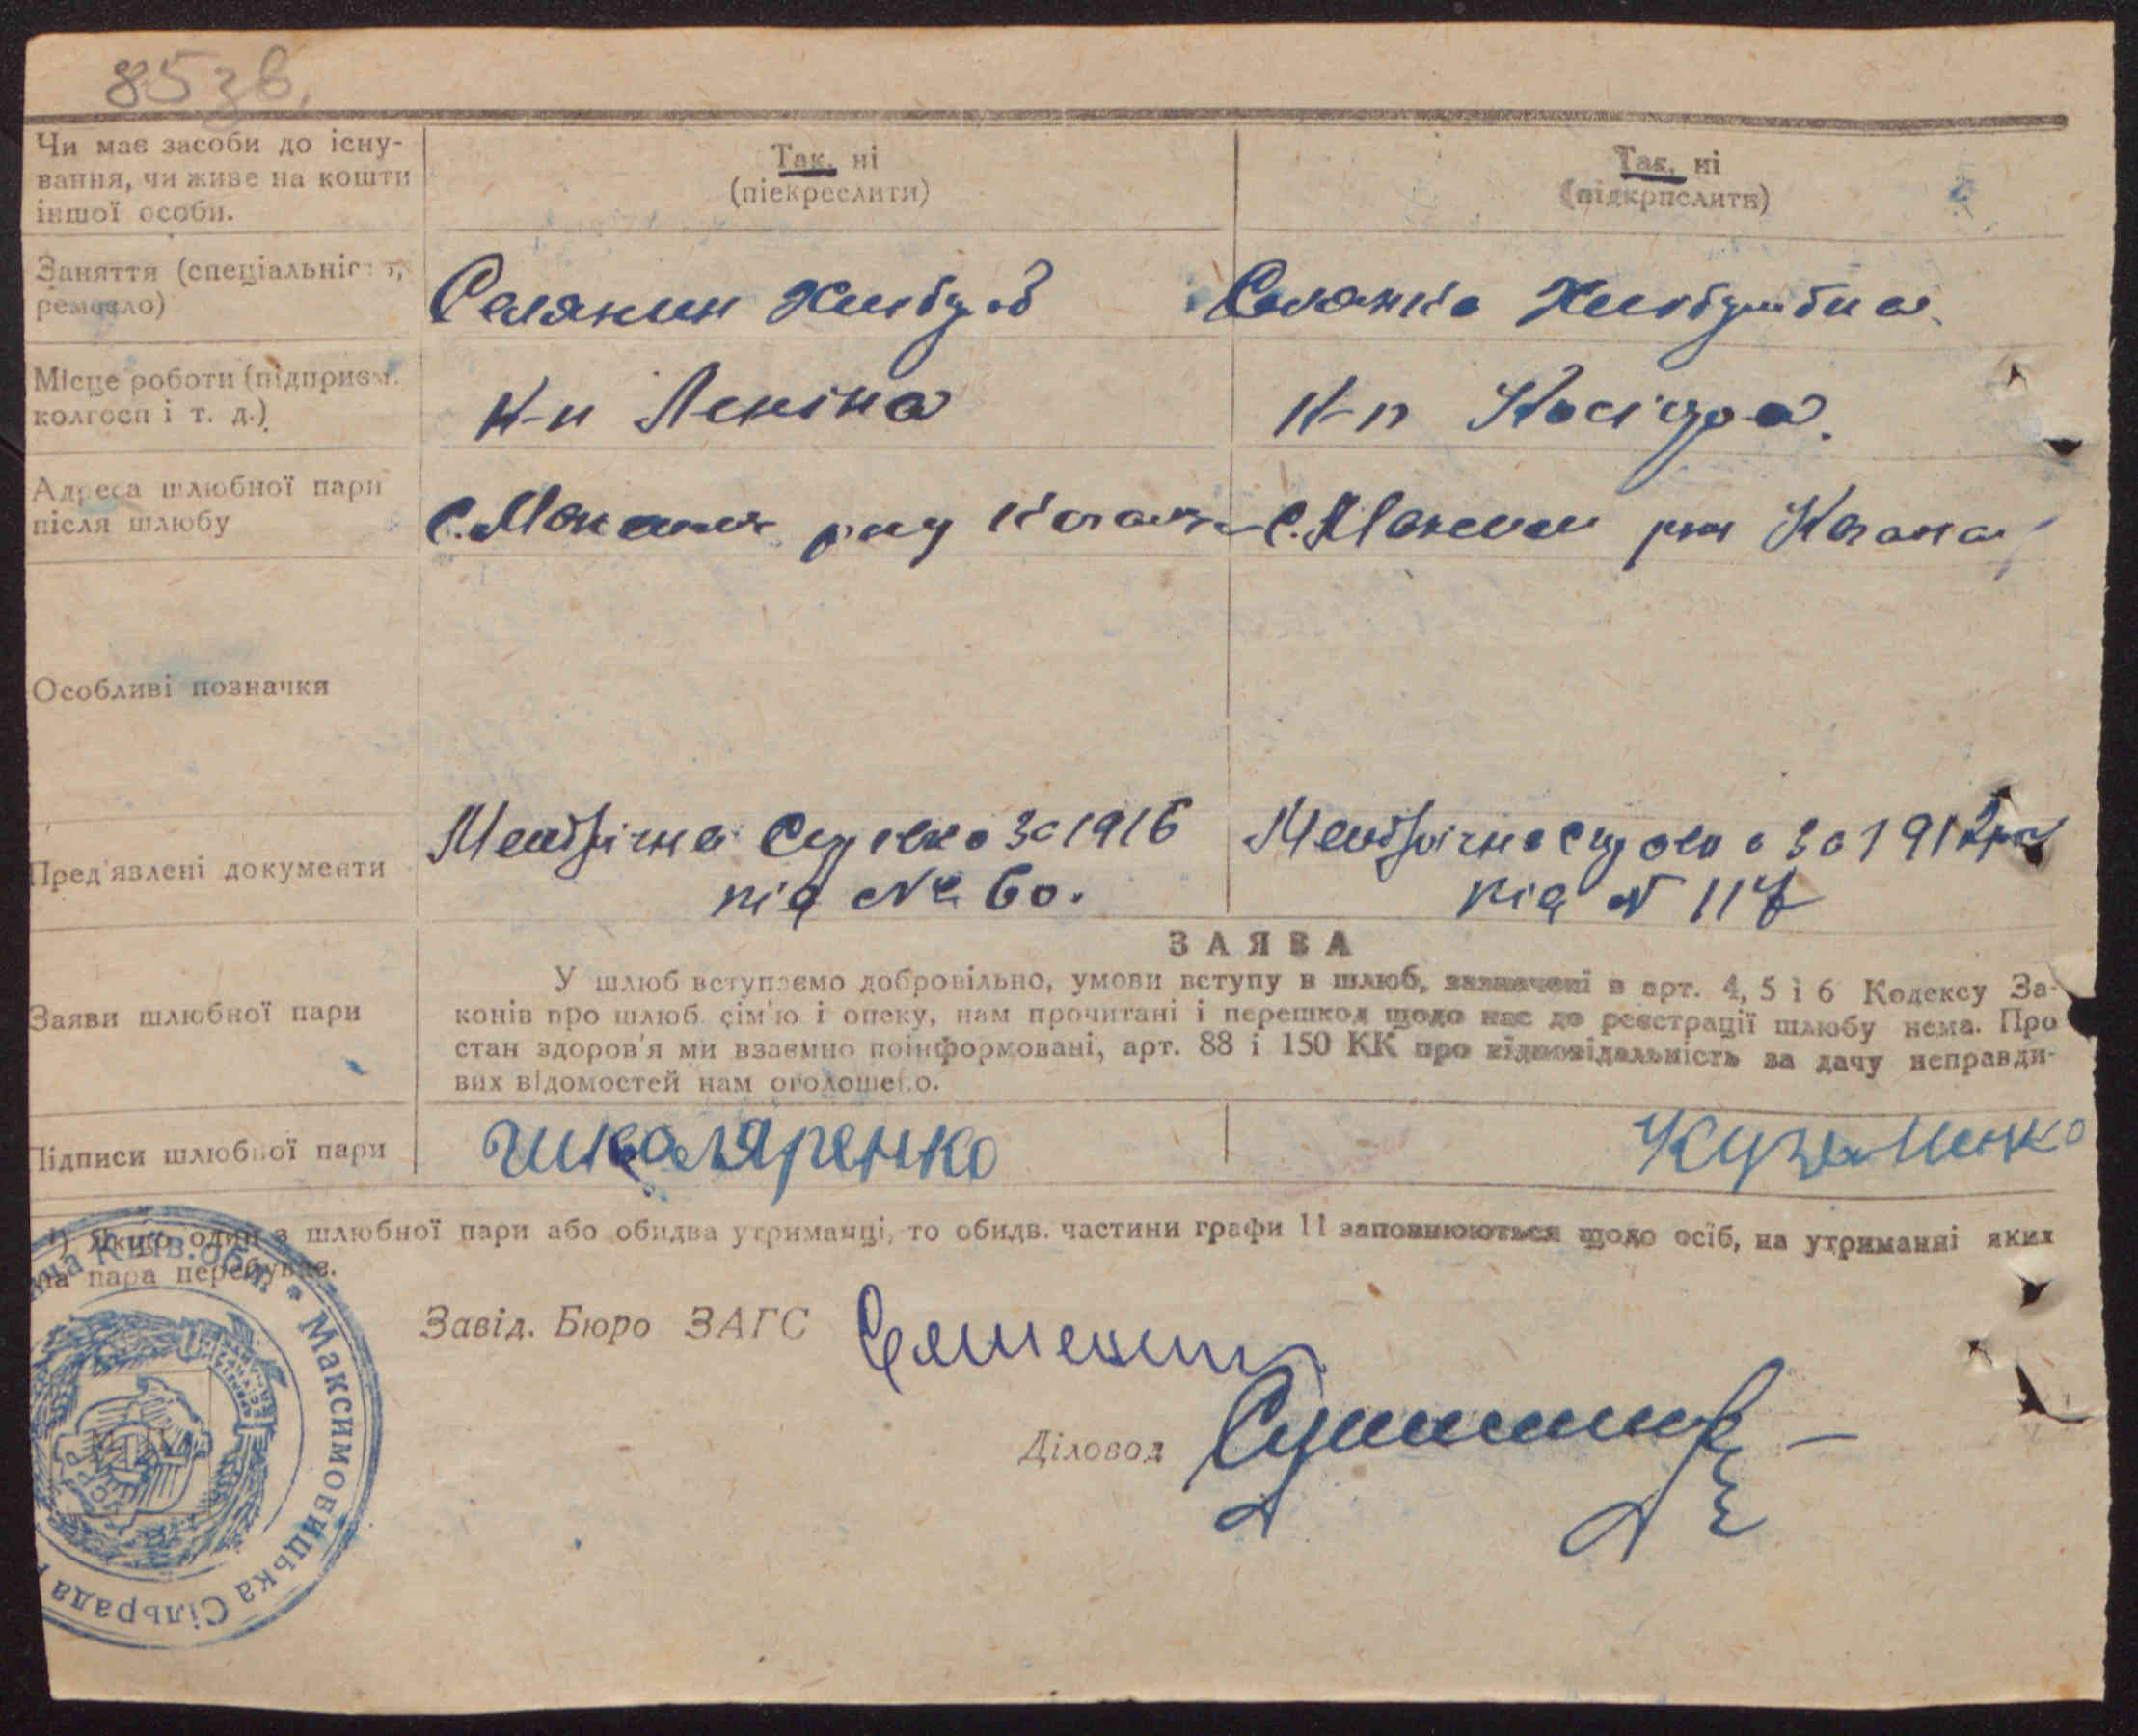 85 зв.
Чи має засоби до існу-
вання, чи живе на кошти
іншої особи.
Так, ні
(піекреслити)
Так, ні
(підкрпслити)
Заняття (спеціальніст,
ремесло)
Селянин Хлібороб
Селянка
Місце роботи (підприєм.
колгосп і т. д.)
К-п Леніна
К-п Косіора.
Адреса шлюбної пари
після шлюбу
с.
с.
Особливі позначки
Пред'явлені документи
Метрічна за 1916
під № 60.
Метрічна за 1912
під № 117
ЗАЯВА
Заяви шлюбної пари
У шлюб вступаємо добровільно, умови вступу в шлюб, зазначені в арт. 4, 5 і 6 Кодексу За-
конів про шлюб, сім'ю і опеку, нам прочитані і перешкод щодо нас до реєстрації шлюбу нема. Про
стан здоров'я ми взаємно поінформовані, арт. 88 і 150 КК про відповідальність за дачу неправди-
вих відомостей нам оголошено.
Підписи шлюбної пари
Школяренко
Кузьменко
¹) Якщо один з шлюбної пари або обидва утриманці, то обидв. частини графи 11 заповнюються щодо осіб, на утриманні яких
ца пара перебуває.
Завід. Бюро ЗАГС
Діловод
Київ. обл. * Максимовицька Сільрада